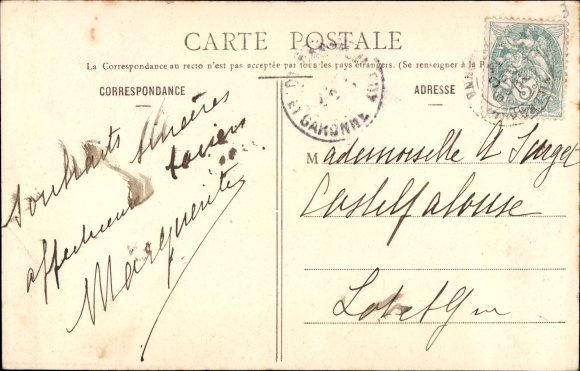 CARTE POSTALE
La Correspondance au recto n'est pas acceptée par tous les pays étrangers. (Se renseigner à la Po
CORRESPONDANCE
ADRESSE
ET GARONNE
Souhaits sincères
affectueux baisers
Marguerite
Mademoiselle A Surget
Castelfalouse
Lot et Gne
5c
3